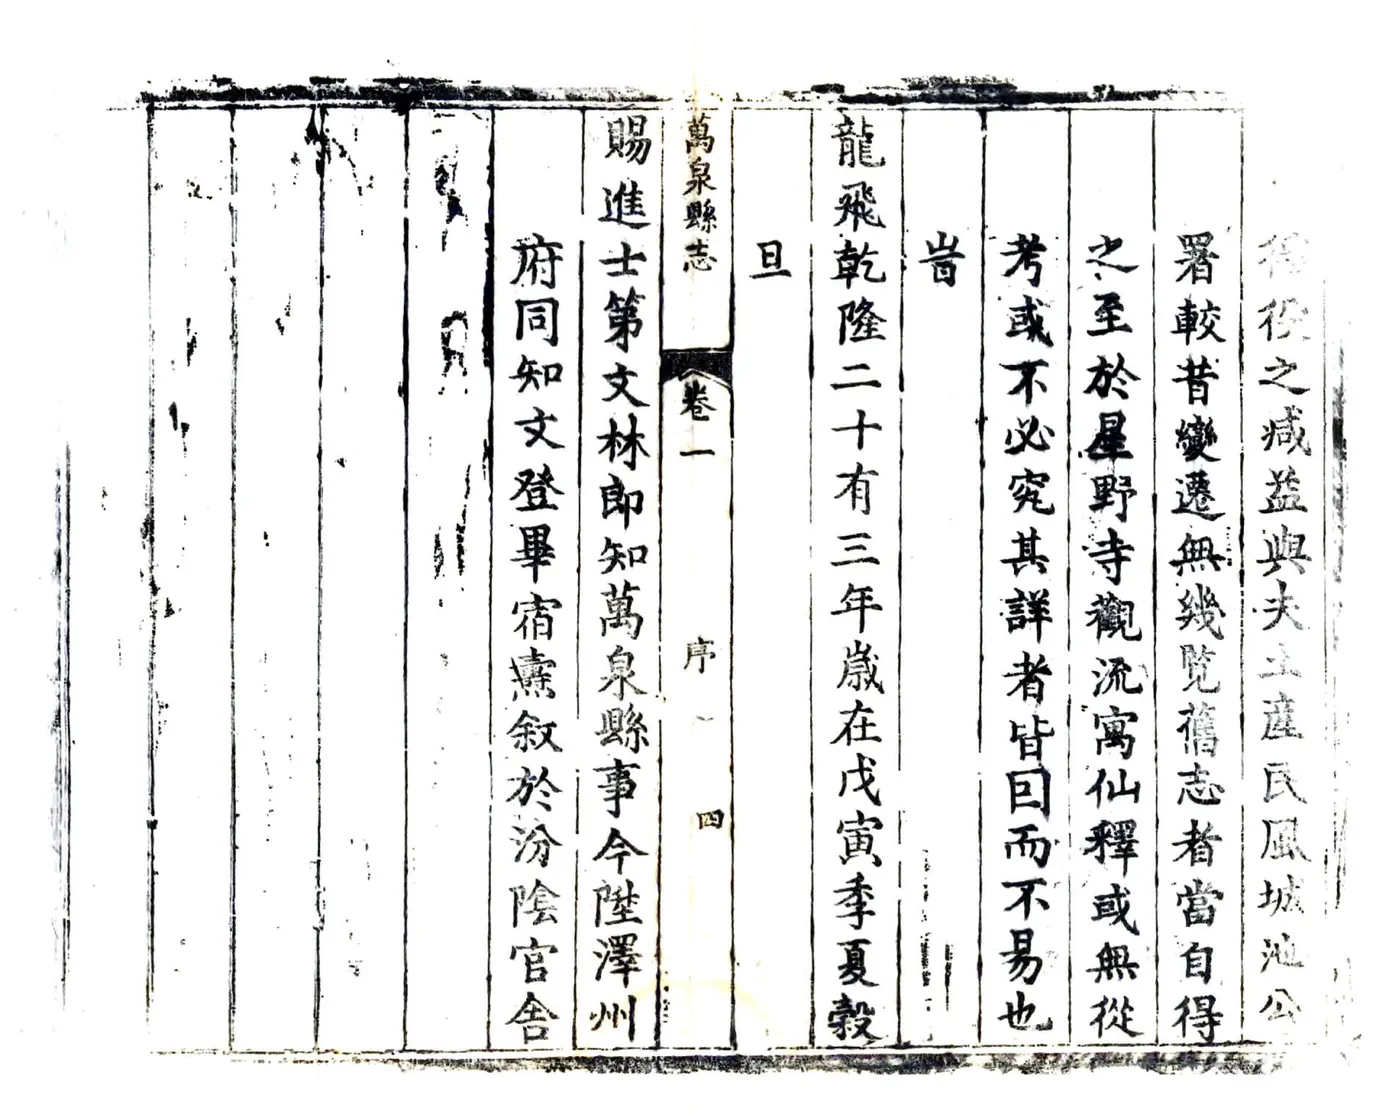 徭役之减益與夫土產民風城池公
署較昔變遷無幾覧舊志者當自得
之至於星野寺觀流寓仙釋或無從
考或不必究其詳者皆因而不易也
旹
龍飛乾隆二十有三年嵗在戊寅季夏穀
旦
萬泉縣志 卷一 序 四
賜進士第文林郎知萬泉縣事今陞澤州
府同知文登畢宿燾叙於汾陰官舍